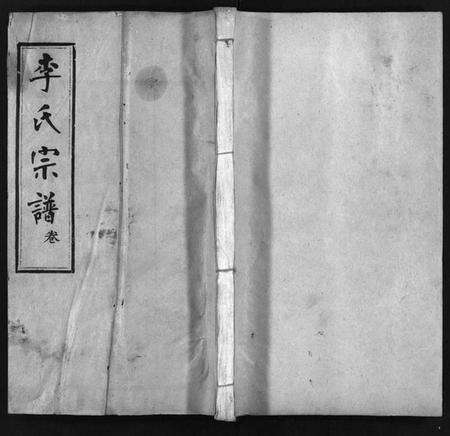 李氏宗譜卷